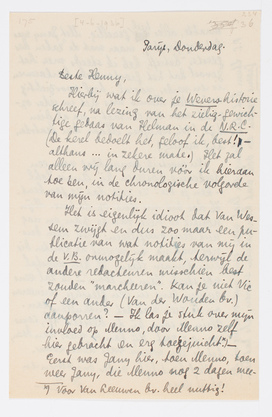 Parijs, Donderdag.
Beste Henny,
Hierbij wat ik over je Wevers-historie
schreef, na lezing van het zielig-gewich-
tige gedaas van Helman in de N.R.C.
(De kerel bedoelt het, geloof ik, best! –
althans ... in zekere mate.) Het zal
alleen wij lang duren vóór ik hieraan
toe ben, in de chronologische volgorde
van mijn notities.
Het is eigenlijk idioot dat Van Wes-
sem zwijgt en dus zoo maar een pu-
blicatie van wat notities van mij in
de V.B. onmogelijk maakt, terwijl de
andere redacteuren misschien best
zouden "marcheeren". Kan je niet Vic
of een ander (Van der Woude bv.)
aanporren? – Ik las je stuk over mijn
invloed op Menno, door Menno zelf
hier gebracht en erg toegejuicht! –
Eerst was Jany hier, toen Menno, toen
weer Jany, die Menno nog 2 dagen mee-
*) Voor Van Leeuwen bv. heel nuttig!